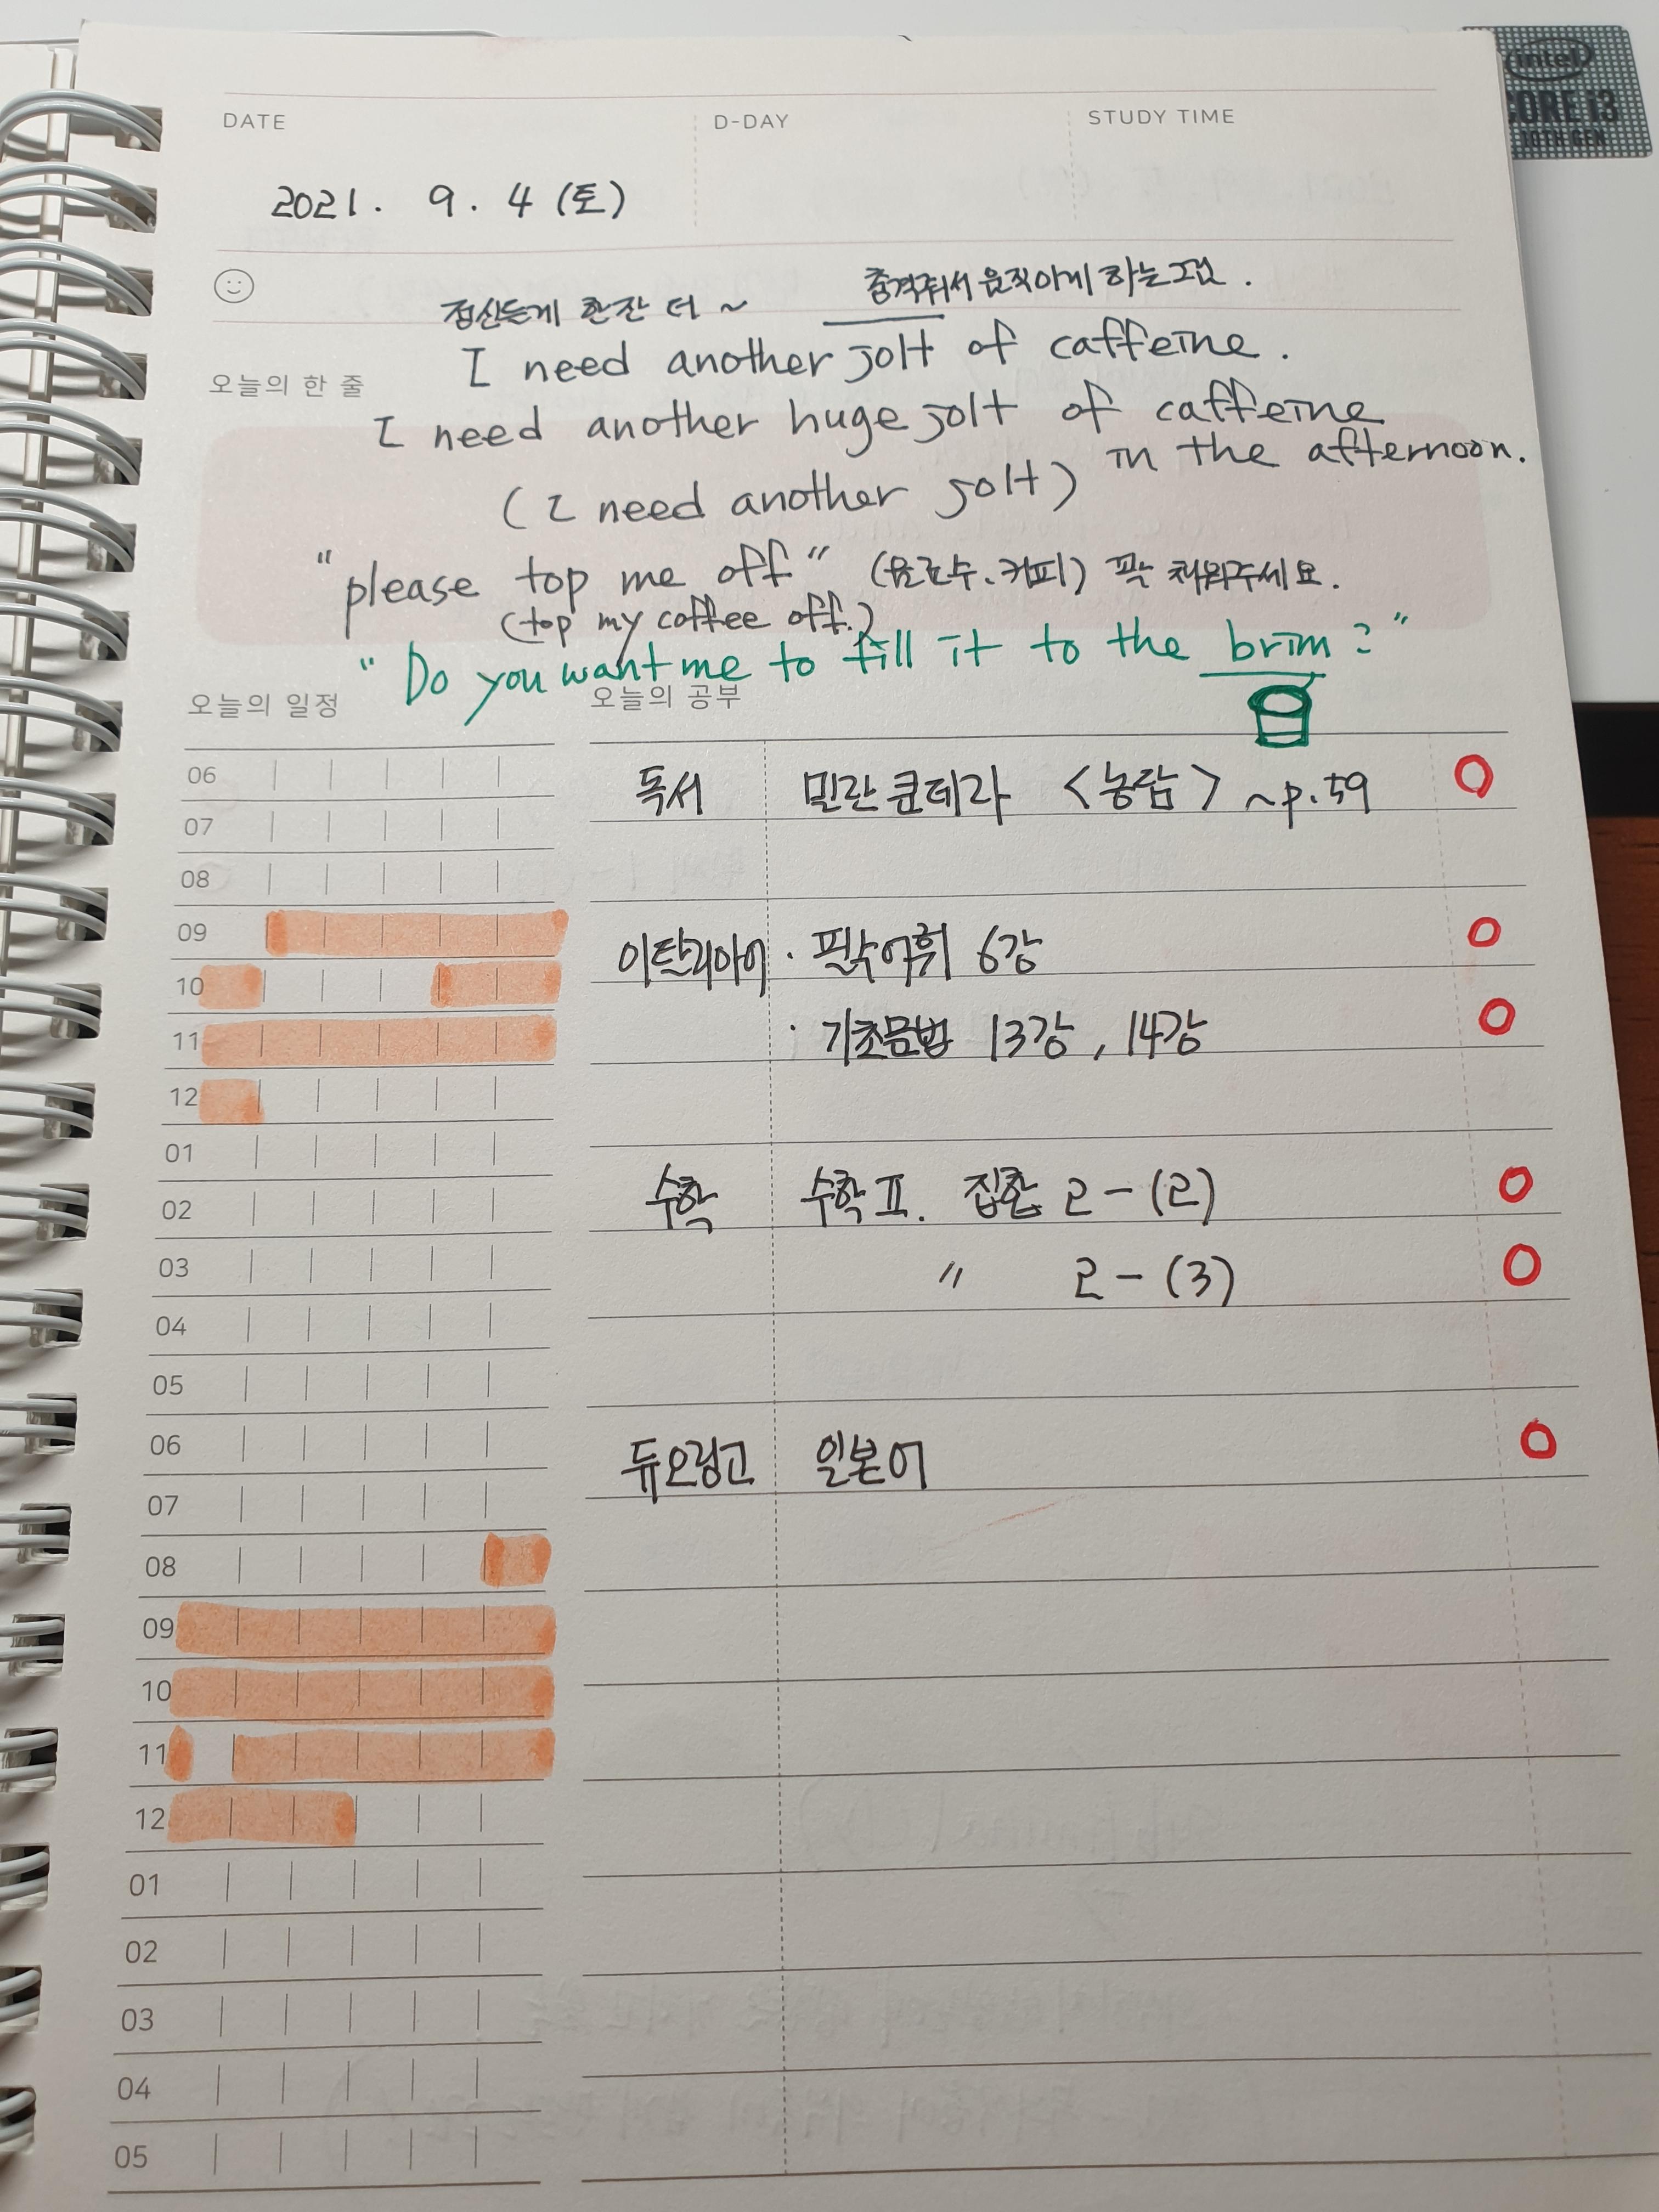 intel
CORE i3
10TH GEN
DATE
D-DAY
STUDY TIME
2021. 9. 4 (토)
정신든게 한잔 더 ~
충격줘서 움직이게 하는 그런.
I need another jolt of caffeine.
오늘의 한 줄
I need another huge jolt of caffeine
in the afternoon.
(I need another jolt)
"please top me off" (음료수, 커피) 꽉 채워주세요.
(top my coffee off.)
"Do you want me to fill it to the brim?"
오늘의 일정
오늘의 공부
06
독서 밀란 쿤데라 <농담> ~p.59 O
07
08
09
이탈리아어 · 필수어휘 6강 O
10
11
· 기초문법 13강, 14강 O
12
01
02
수학 수학 II. 집합 2-(2) O
03
" 2-(3) O
04
05
06
듀오링고 일본어 O
07
08
09
10
11
12
01
02
03
04
05